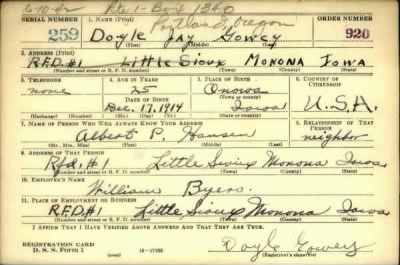 6-10-42 Rte 1- Box 1340
Portland, Oregon
SERIAL NUMBER 1. NAME (Print) ORDER NUMBER
259 Doyle Jay Gowey 920
(First) (Middle) (Last)
2. ADDRESS (Print)
R.F.D.#1 Little Sioux Monona Iowa
(Number and street or R. F. D. number) (Town) (County) (State)
3. TELEPHONE 4. AGE IN YEARS 5. PLACE OF BIRTH 6. COUNTRY OF CITIZENSHIP
none 25 Onowa
DATE OF BIRTH (Town or county)
Dec. 17, 1914 Iowa U.S.A.
(Exchange) (Number) (Mo.) (Day) (Yr.) (State or country)
7. NAME OF PERSON WHO WILL ALWAYS KNOW YOUR ADDRESS 8. RELATIONSHIP OF THAT PERSON
Albert P. Hansen neighbor
(Mr., Mrs., Miss) (First) (Middle) (Last)
9. ADDRESS OF THAT PERSON
Rfd. #1 Little Sioux Monona Iowa
(Number and street or R. F. D. number) (Town) (County) (State)
10. EMPLOYER'S NAME
William Byers.
11. PLACE OF EMPLOYMENT OR BUSINESS
R.F.D.#1 Little Sioux Monona Iowa
(Number and street or R. F. D. number) (Town) (County) (State)
I AFFIRM THAT I HAVE VERIFIED ABOVE ANSWERS AND THAT THEY ARE TRUE.
REGISTRATION CARD
D. S. S. Form 1 16-17105 Doyle Gowey
(over) (Registrant's signature)